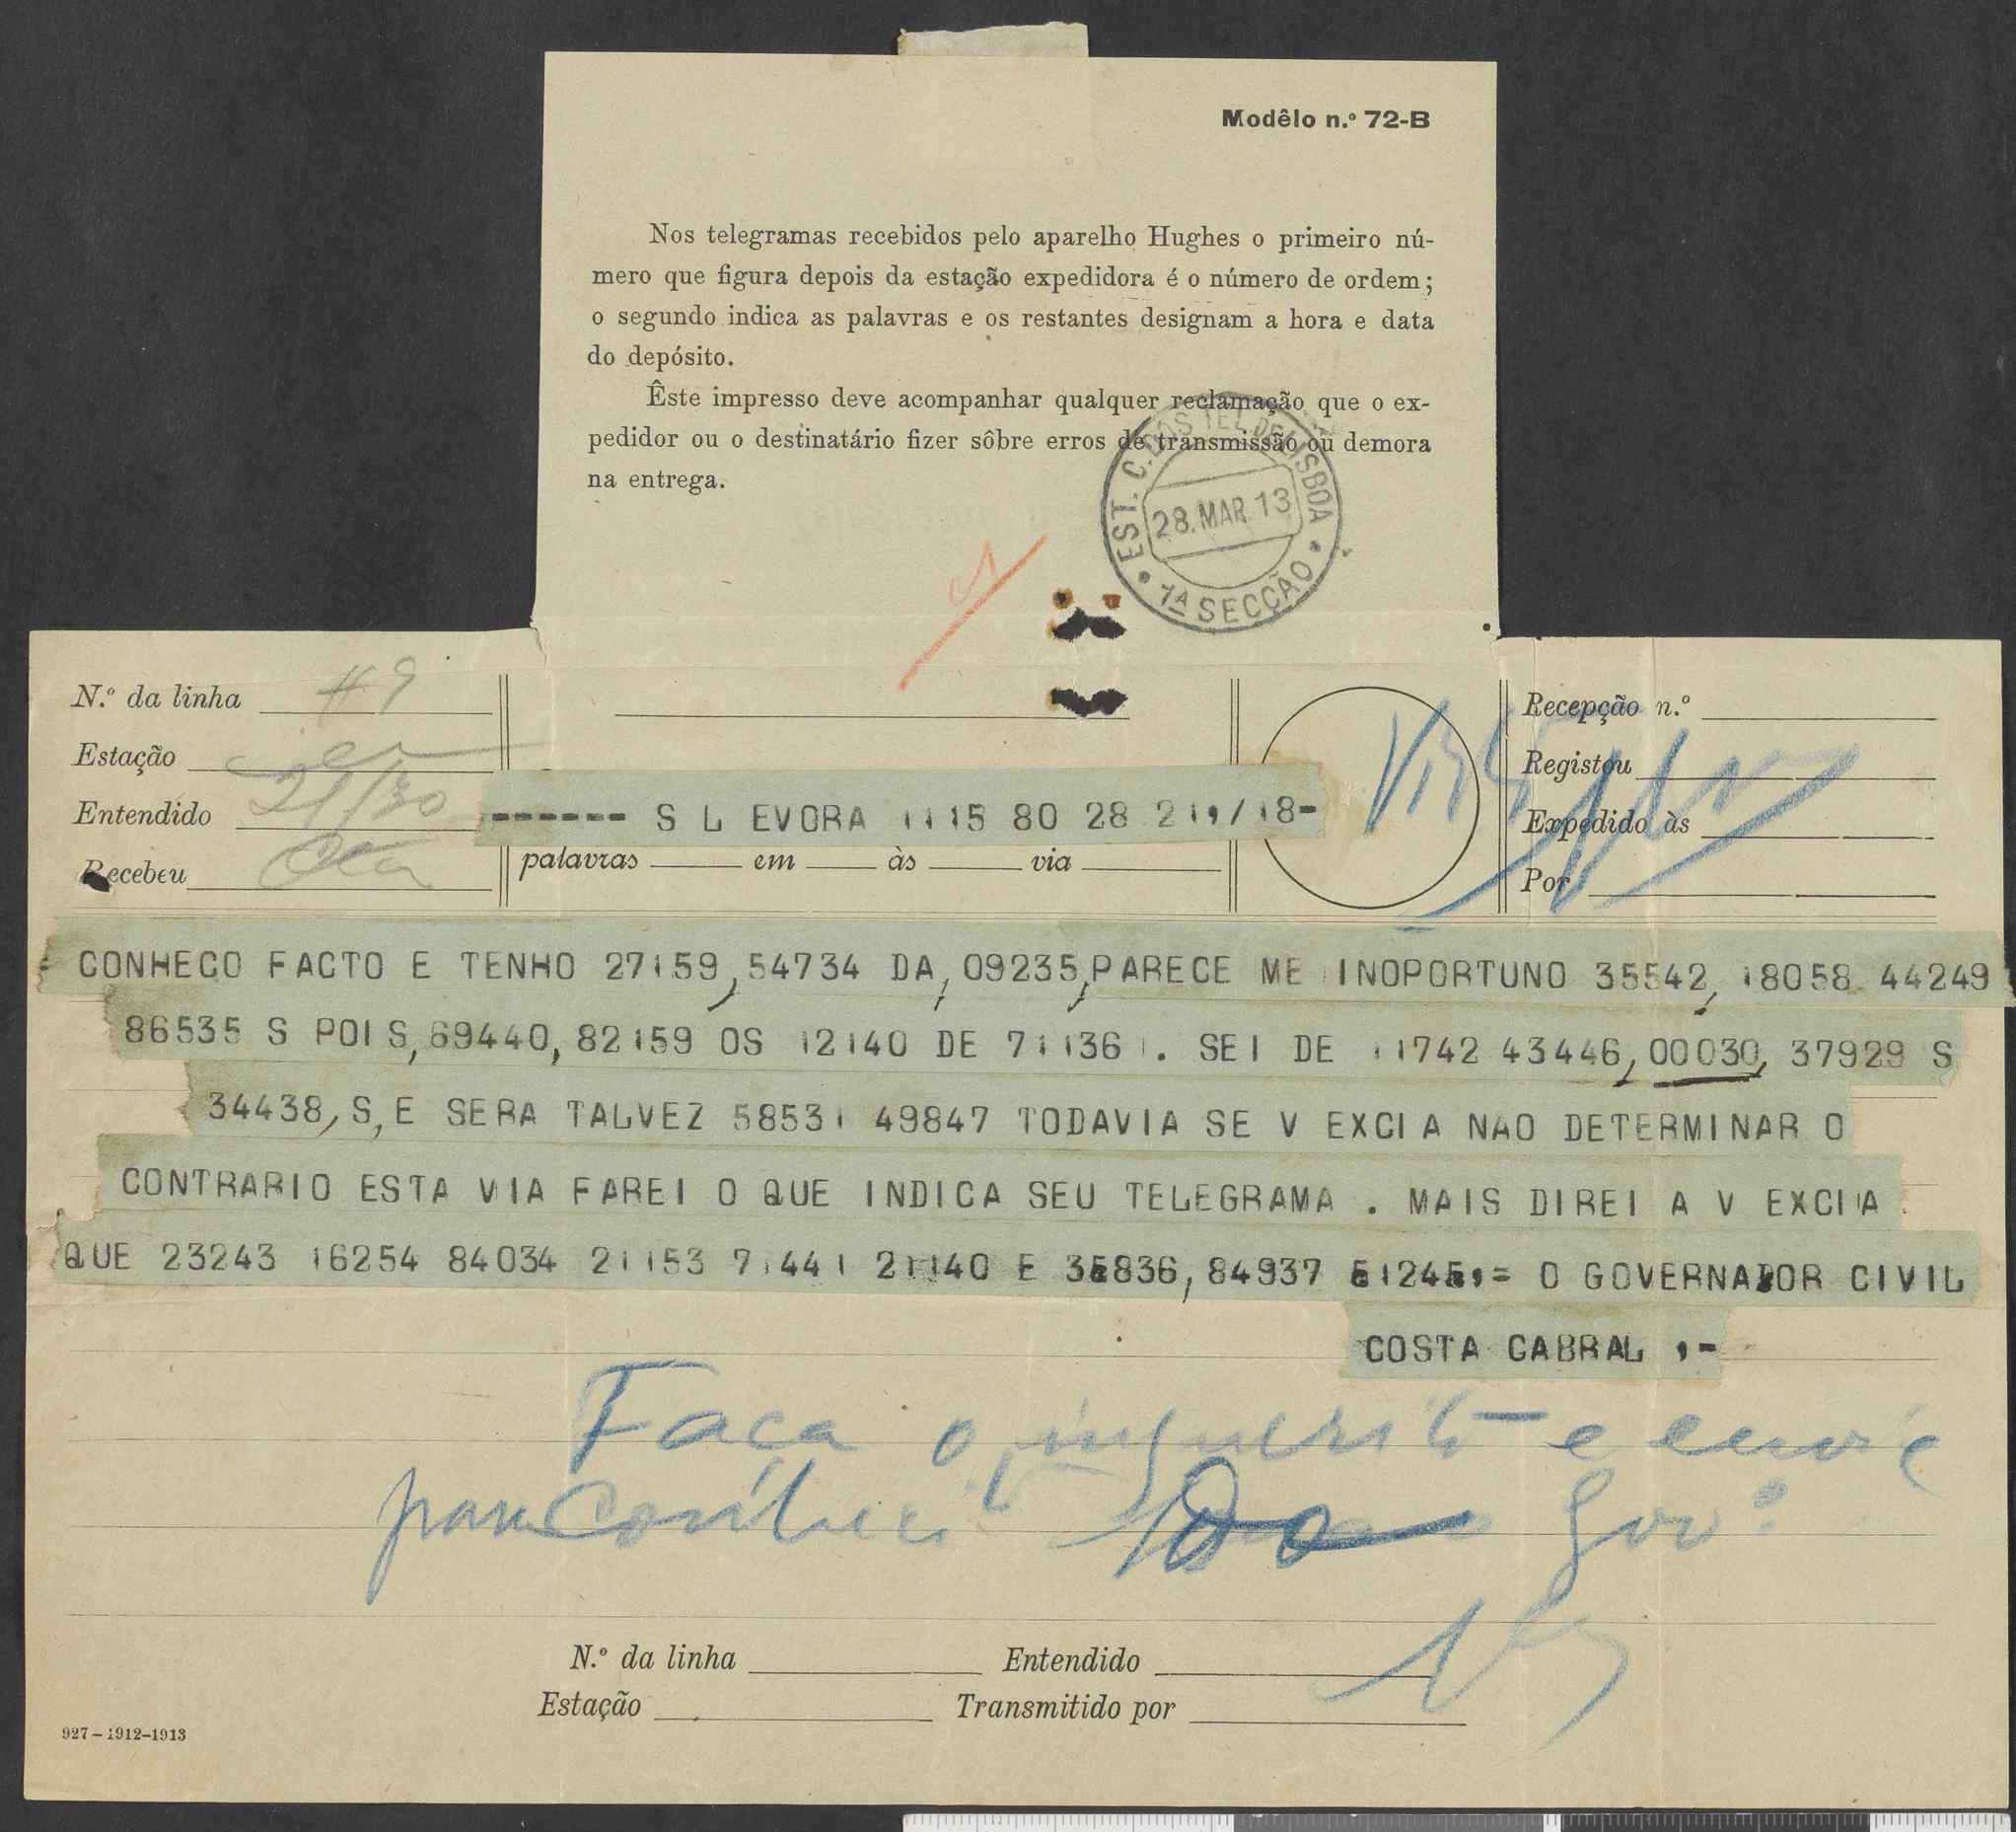 Modêlo n.º 72-B
Nos telegramas recebidos pelo aparelho Hughes o primeiro nú-
mero que figura depois da estação expedidora é o número de ordem;
o segundo indica as palavras e os restantes designam a hora e data
do depósito.
Êste impresso deve acompanhar qualquer reclamação que o ex-
pedidor ou o destinatário fizer sôbre erros de transmissão ou demora
na entrega.
EST. C. DOS TEL. DE LISBOA
28. MAR. 13
1ª SECÇÃO
N.º da linha H 9
Estação
Entendido 21/30
Recebeu
S L EVORA 1115 80 28 21,/18-
palavras em às via
Recepção n.º
Registou
Expedido às
Por
CONHECO FACTO E TENHO 27159, 54734 DA, 09235, PARECE ME INOPORTUNO 35542, 18058 44249
86535 S POIS, 69440, 82159 OS 12140 DE 71136 . SEI DE 11742 43446, 00030, 37929 S
34438, S, E SERA TALVEZ 58531 49847 TODAVIA SE V EXCIA NAO DETERMINAR O
CONTRARIO ESTA VIA FAREI O QUE INDICA SEU TELEGRAMA . MAIS DIREI A V EXCIA
QUE 23243 16254 84034 21153 71441 21140 E 84937 = O GOVERNADOR CIVIL
COSTA CABRAL ,-
Faca o inquerito e envie
para Do Govº
N.º da linha Entendido
Estação Transmitido por
927-1912-1913